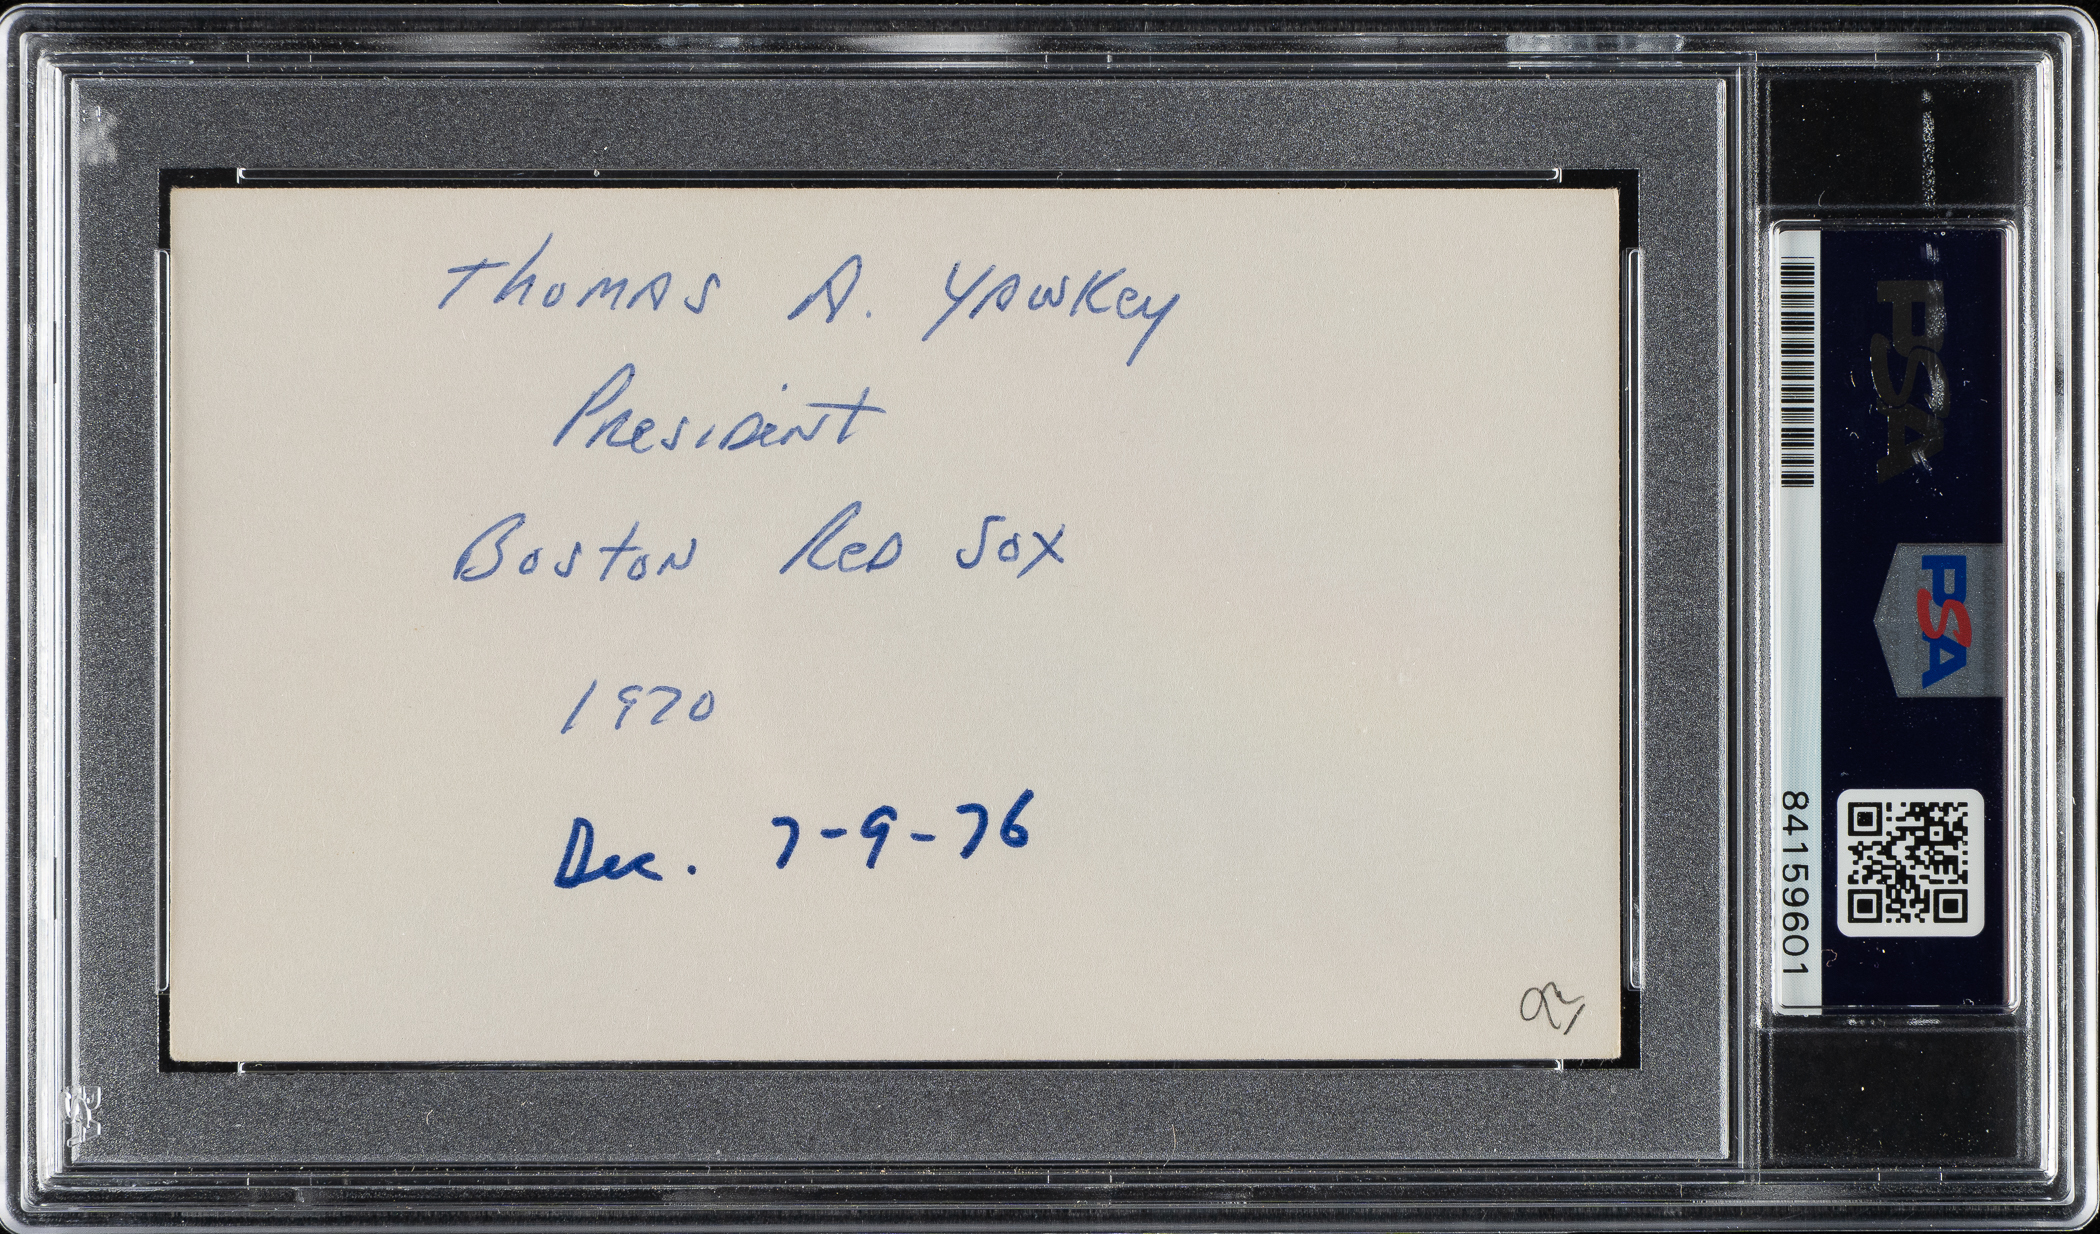 Thomas A. Yawkey
President
Boston Red Sox
1970
Dec. 7-9-76
PSA
PSA
84159601
PSA